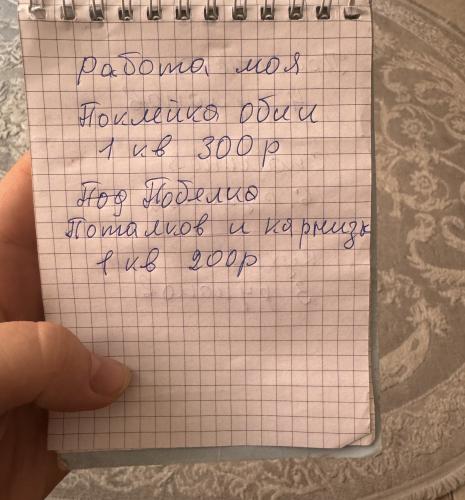 Работа моя
Поклейка обии
1 кв 300р
Под Побелка
Поталков и карнизк
1 кв 200р